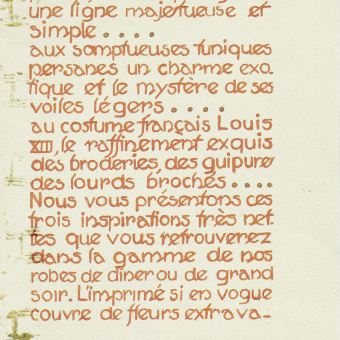 une ligne majestueuse et
simple . . . .
aux somptueuses tuniques
persanes un charme exo-
tique et le mystère de ses
voiles légers . . . .
au costume français Louis
XIII, le raffinement exquis
des broderies, des guipures
des lourds brochés . . . .
Nous vous présentons ces
trois inspirations très net-
tes que vous retrouverez
dans la gamme de nos
robes de diner ou de grand
soir. L'imprimé si en vogue
couvre de fleurs extrava-